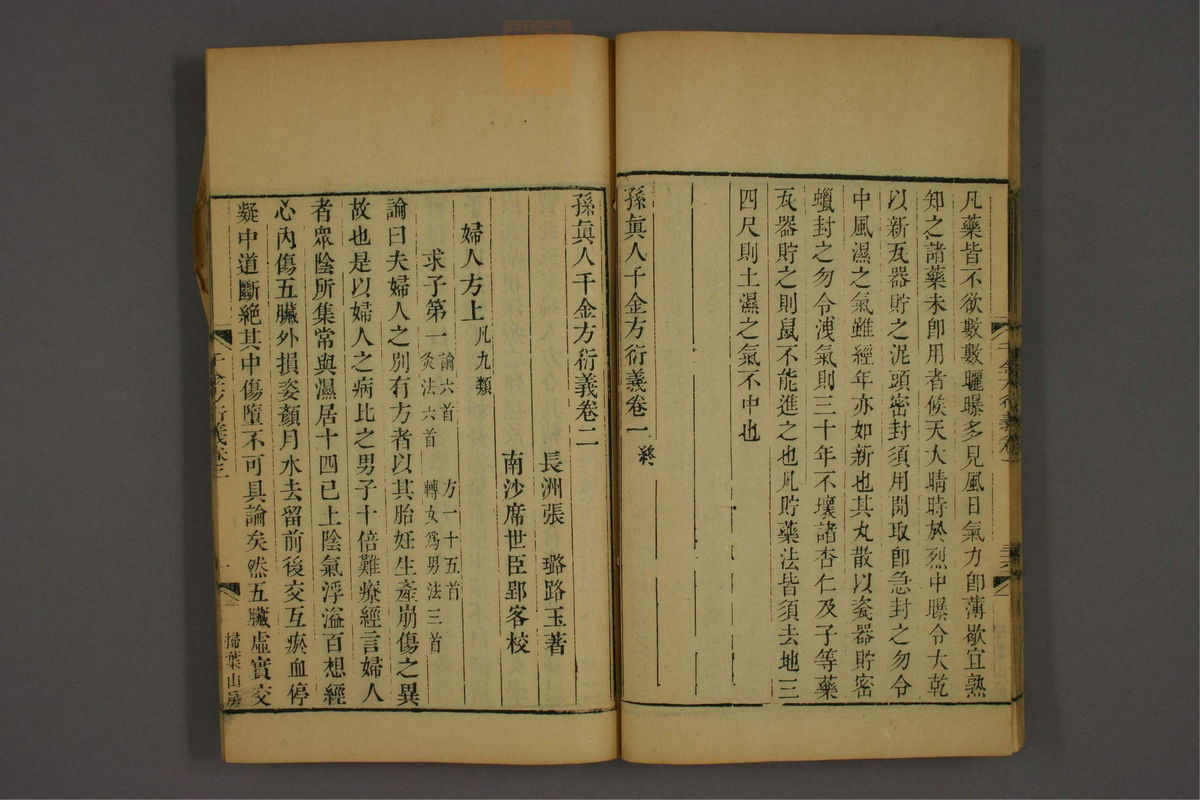 凡藥皆不欲數數曬曝多見風日氣力卽薄歇宜熟
知之諸藥未卽用者候天大晴時於烈中曝令大乾
以新瓦器貯之泥頭密封須用開取卽急封之勿令
中風濕之氣雖經年亦如新也其丸散以瓷器貯密
蠟封之勿令洩氣則三十年不壞諸杏仁及子等藥
瓦器貯之則鼠不能進之也凡貯藥法皆須去地三
四尺則土濕之氣不中也
孫眞人千金方衍義卷一 終
孫眞人千金方衍義卷二
長洲張 璐路玉著
南沙席世臣郢客校
婦人方上 凡九類
求子第一 論六首 方一十五首
灸法六首 轉女爲男法三首
論曰夫婦人之別有方者以其胎妊生產崩傷之異
故也是以婦人之病比之男子十倍難療經言婦人
者眾陰所集常與濕居十四已上陰氣浮溢百想經
心內傷五臟外損姿顏月水去留前後交互瘀血停
凝中道斷絕其中傷墮不可具論矣然五臟虛實交
千金方衍義卷二
一
掃葉山房